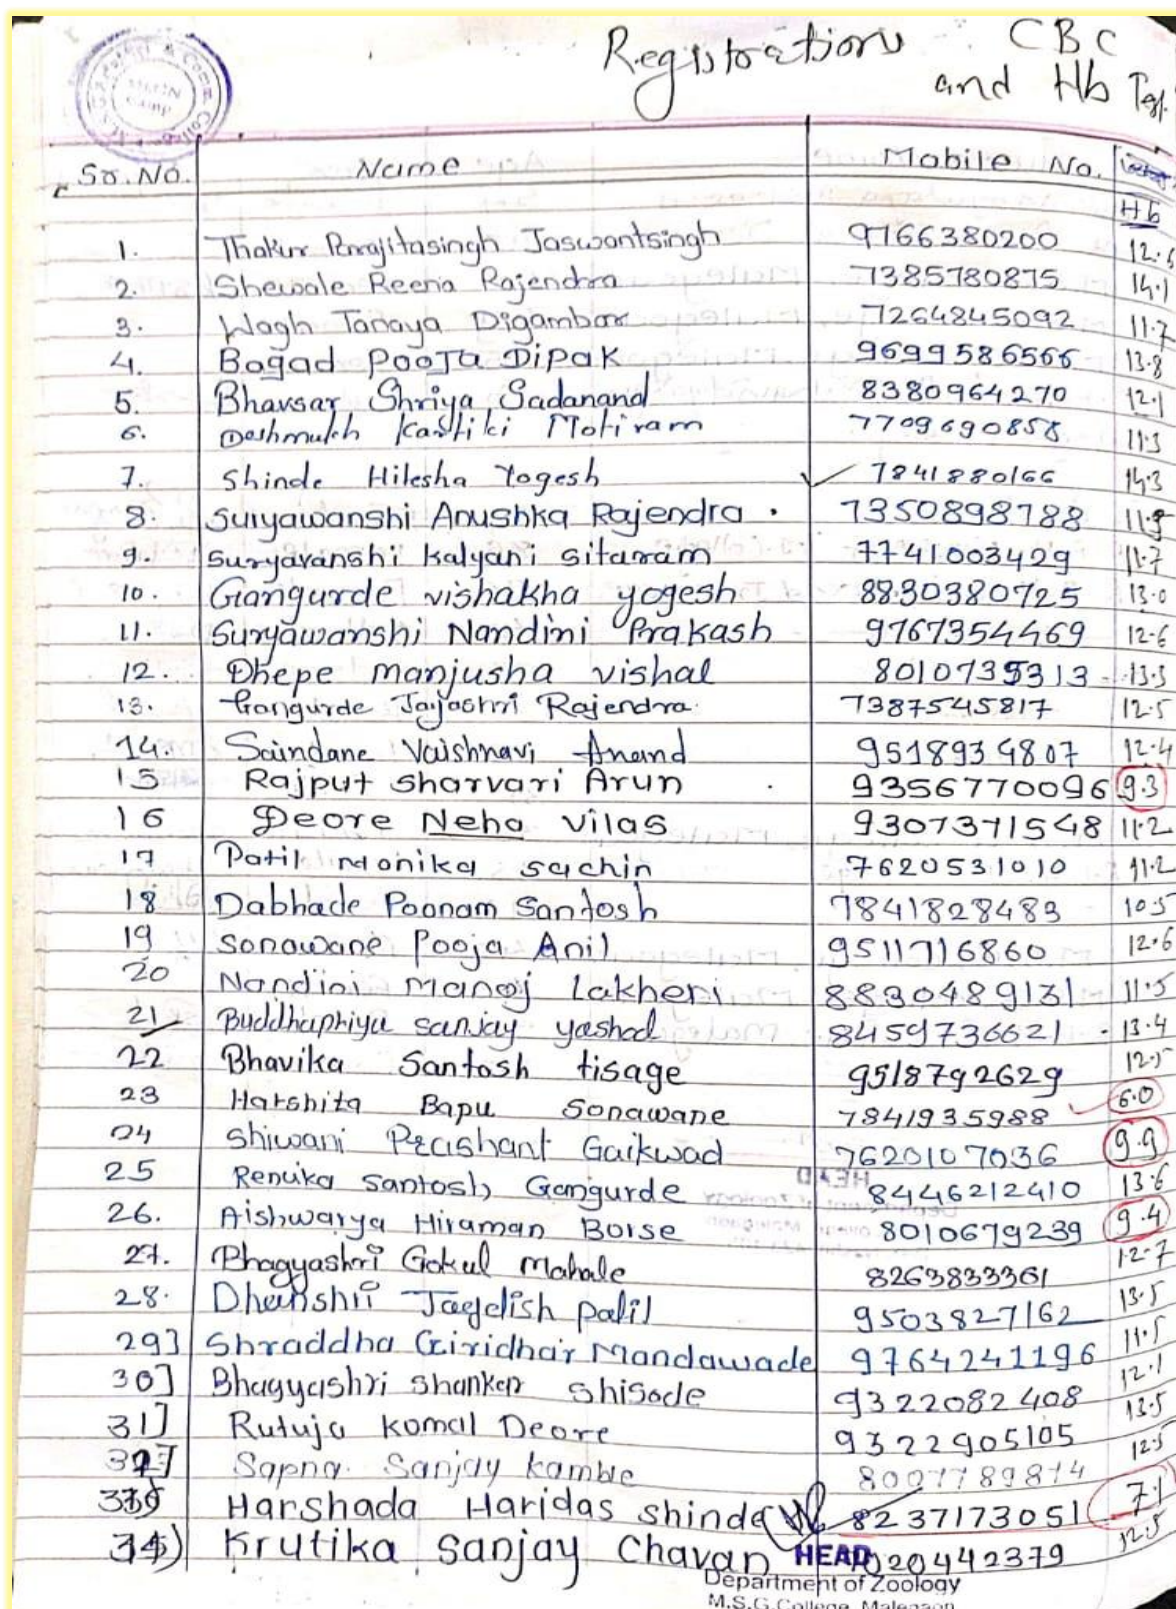 Registrations CBC
and Hb Test.
Sr. No. Name Mobile No.
Hb
1. Thakur Jaswantsingh 9766380200
2. Shewale Reena Rajendra 7385780875 14.1
3. Wagh Tanaya Digambar 7264845092 11.7
4. Bagad POOJA DIPAK 9699586566 13.8
5. Bhavsar Shriya Sadanand 8380964270 12.1
6. Deshmukh Motiram 7709690858 11.3
7. Shinde Hilesha Yogesh 7841880166 14.3
8. Suryawanshi Anushka Rajendra. 7350898788
9. Suryavanshi Kalyani sitaram 7741003429 11.7
10. Gangurde vishakha yogesh 8830380725 13.0
11. Suryawanshi Nandini Prakash 9767354469 12.6
12. Dhepe manjusha vishal 8010735313 13.3
13. Gangurde Jayashri Rajendra. 7387545817 12.5
14. Saindane Vaishnavi Anand 9518934807 12.4
15 Rajput sharvari Arun 9356770096 9.3
16 Deore Neha vilas 9307371548 11.2
17 Patil Monika sachin 7620531010 11.2
18 Dabhade Poonam Santosh 7841828483 10.5
19 sonawane Pooja Anil 9511716860 12.6
20 Nandini Manoj Lakheri 8830489131 11.5
21 Buddhapriya sanjay yashod 8459736621 13.4
22 Bhavika Santosh tisage 9518792629 12.5
23 Harshita Bapu Sonawane 7841935988 6.0
24 Shiwani Prashant Gaikwad 7620107036 9.9
25 Renuka santosh Gangurde 8446212410 13.6
26. Aishwarya Hiraman Borse 8010679239 9.4
27. Bhagyashri Gokul Mahale 8263833361 12.7
28. Dhanshri Jagdish patil 9503827162 13.5
29] Shraddha Giridhar Mandawade 9764241196 11.5
30] Bhagyashri shankar shisode 9322082408 12.1
31] Rutuja Komal Deore 9322905105 13.5
32] Sapna. Sanjay kamble 8007789814 12.5
33) Harshada Haridas shinde 8237173051 7.1
34) Krutika Sanjay Chavan 7020442379 12.5
HEAD
Department of Zoology
M.S.G.College, Malegaon